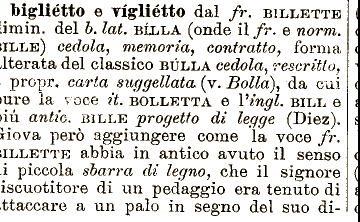 bigliétto e vigliétto dal fr. BILLETTE
dimin. del b. lat. BÍLLA (onde il fr. e norm.
BILLE) cedola, memoria, contratto, forma
alterata del classico BÚLLA cedola, rescritto,
propr. carta suggellata (v. Bolla), da cui
pure la voce it. BOLLETTA e l'ingl. BILL e
più antic. BILLE progetto di legge (Diez).
Giova però aggiungere come la voce fr.
BILLETTE abbia in antico avuto il senso
di piccola sbarra di legno, che il signore
riscuotitore di un pedaggio era tenuto di
attaccare a un palo in segno del suo di-